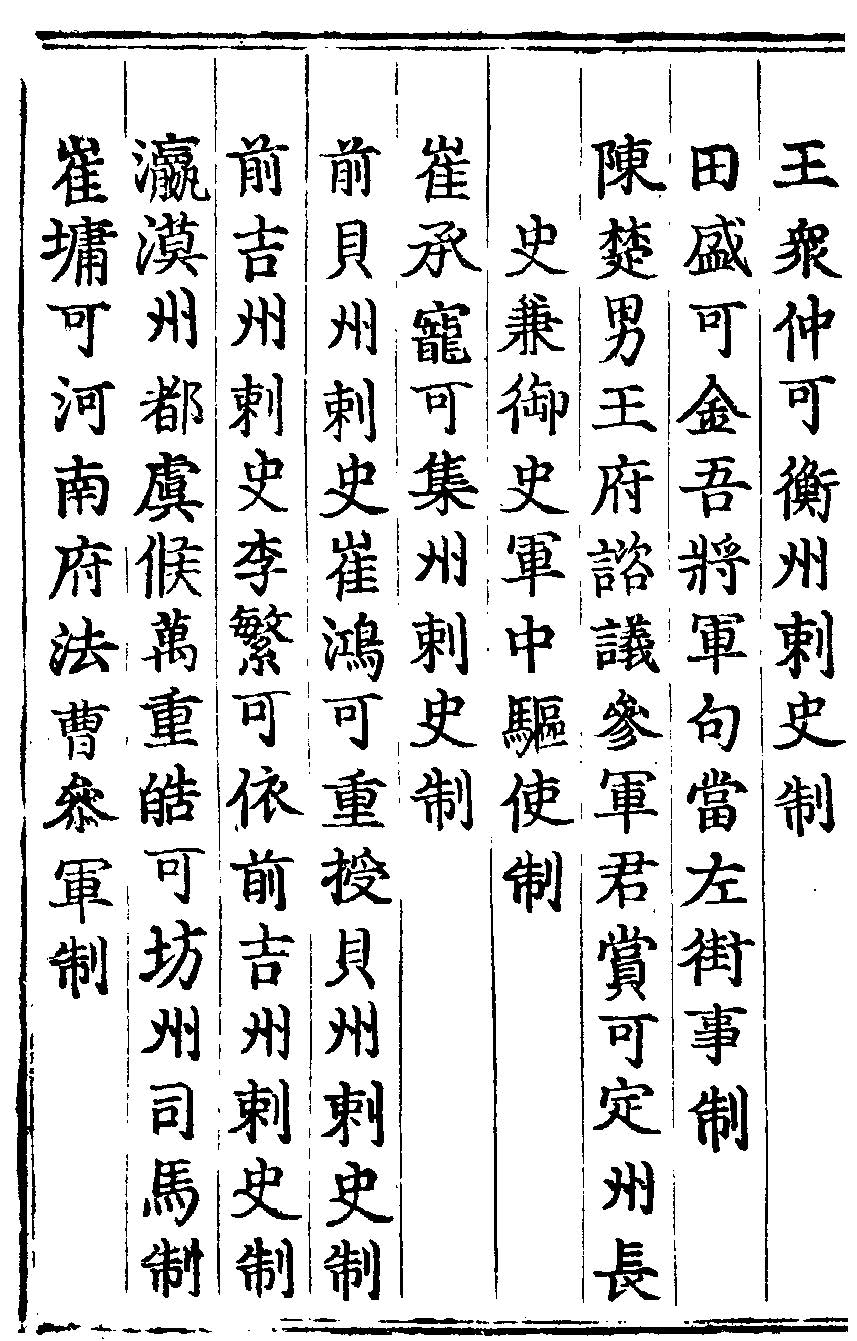 王衆仲可衡州刺史制
田盛可金吾將軍句當左街事制
陳楚男王府諮議參軍君賞可定州長
史兼御史軍中驅使制
崔承寵可集州刺史制
前貝州刺史崔鴻可重授貝州刺史制
前吉州刺史李繁可依前吉州刺史制
瀛漠州都虞候萬重皓可坊州司馬制
崔墉可河南府法曹叅軍制